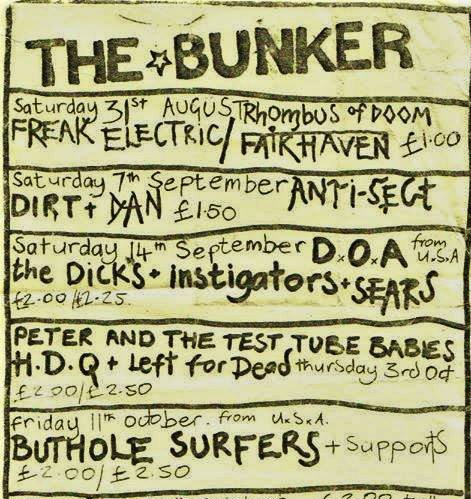 THE ☆ BUNKER
Saturday 31st AUGUST Rhombus of DOOM
FREAK ELECTRIC / FAIRHAVEN £1.00
Saturday 7th September ANTI-SECT
DIRT + DAN £1.50
Saturday 14th September D.O.A from U.S.A
the DICKS + instigators + SEARS
£2.00/£2.25
PETER AND THE TEST TUBE BABIES
H.D.Q + Left for Dead thursday 3rd Oct
£2.00/£2.50
friday 11th october. from U.S.A.
BUTHOLE SURFERS + Supports
£2.00/£2.50